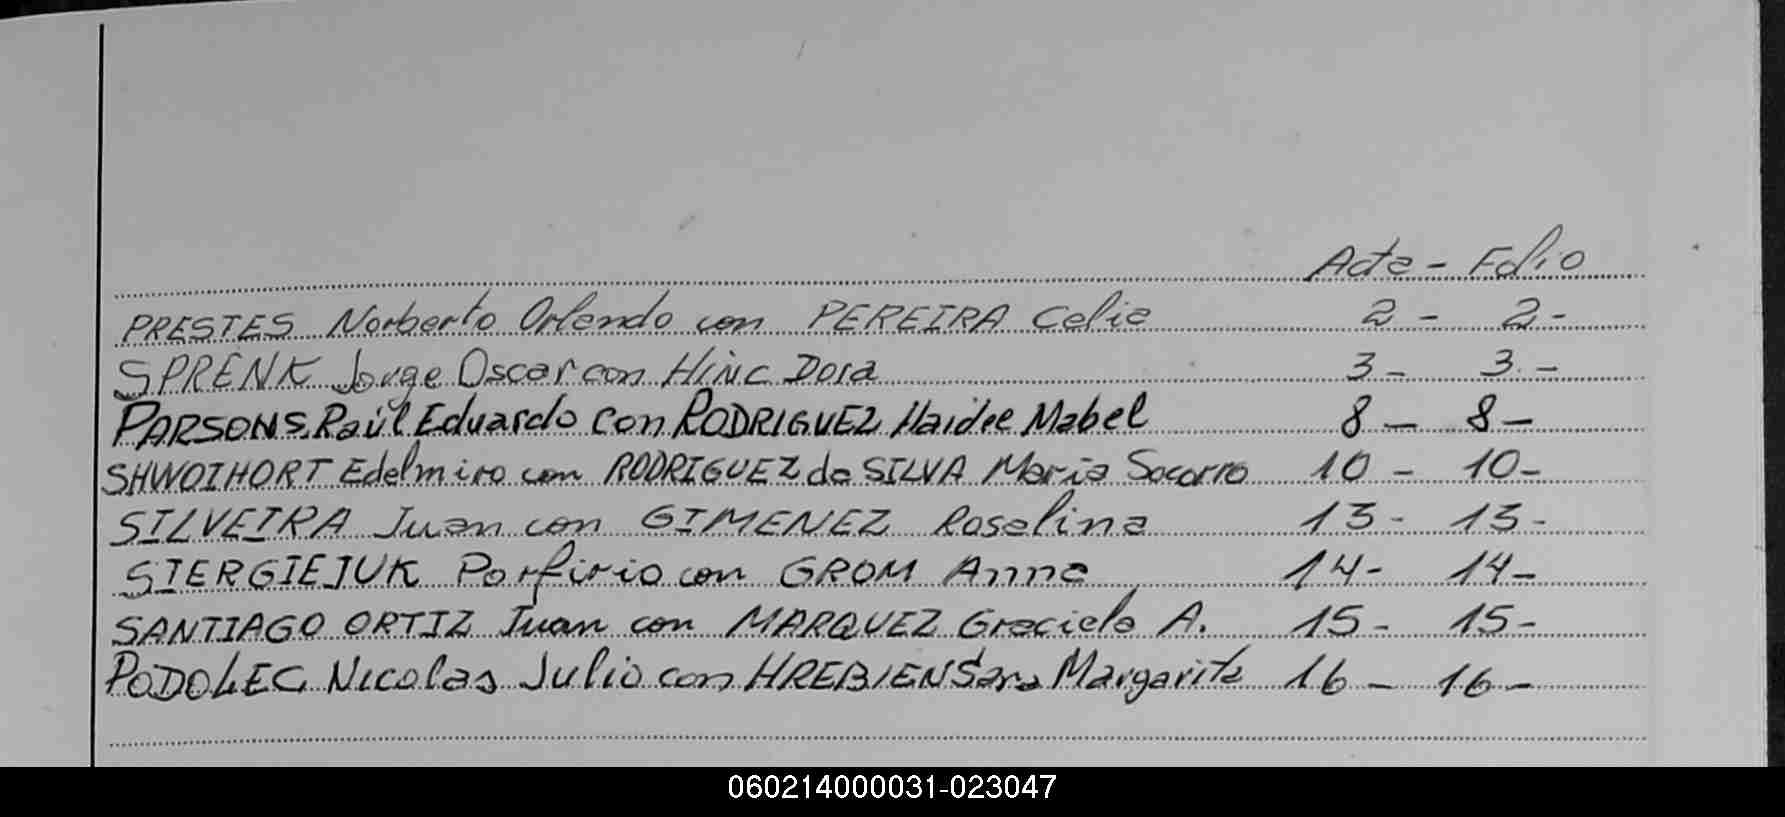 Acta - Folio
PRESTES Norberto Orlando con PEREIRA Celia 2 - 2 -
SPRENK Jorge Oscar con HiNc Dora 3 - 3 -
PARSONS Raúl Eduardo con RODRIGUEZ Haidee Mabel 8 - 8 -
SHWOIHORT Edelmiro con RODRIGUEZ da SILVA Maria Socorro 10 - 10 -
SILVEIRA Juan con GIMENEZ Roselina 13 - 13 -
SIERGIEJUK Porfirio con GROM Anna 14 - 14 -
SANTIAGO ORTIZ Juan con MARQUEZ Graciela A. 15 - 15 -
PODOLEC Nicolas Julio con HREBIEN Sara Margarita 16 - 16 -
060214000031-023047